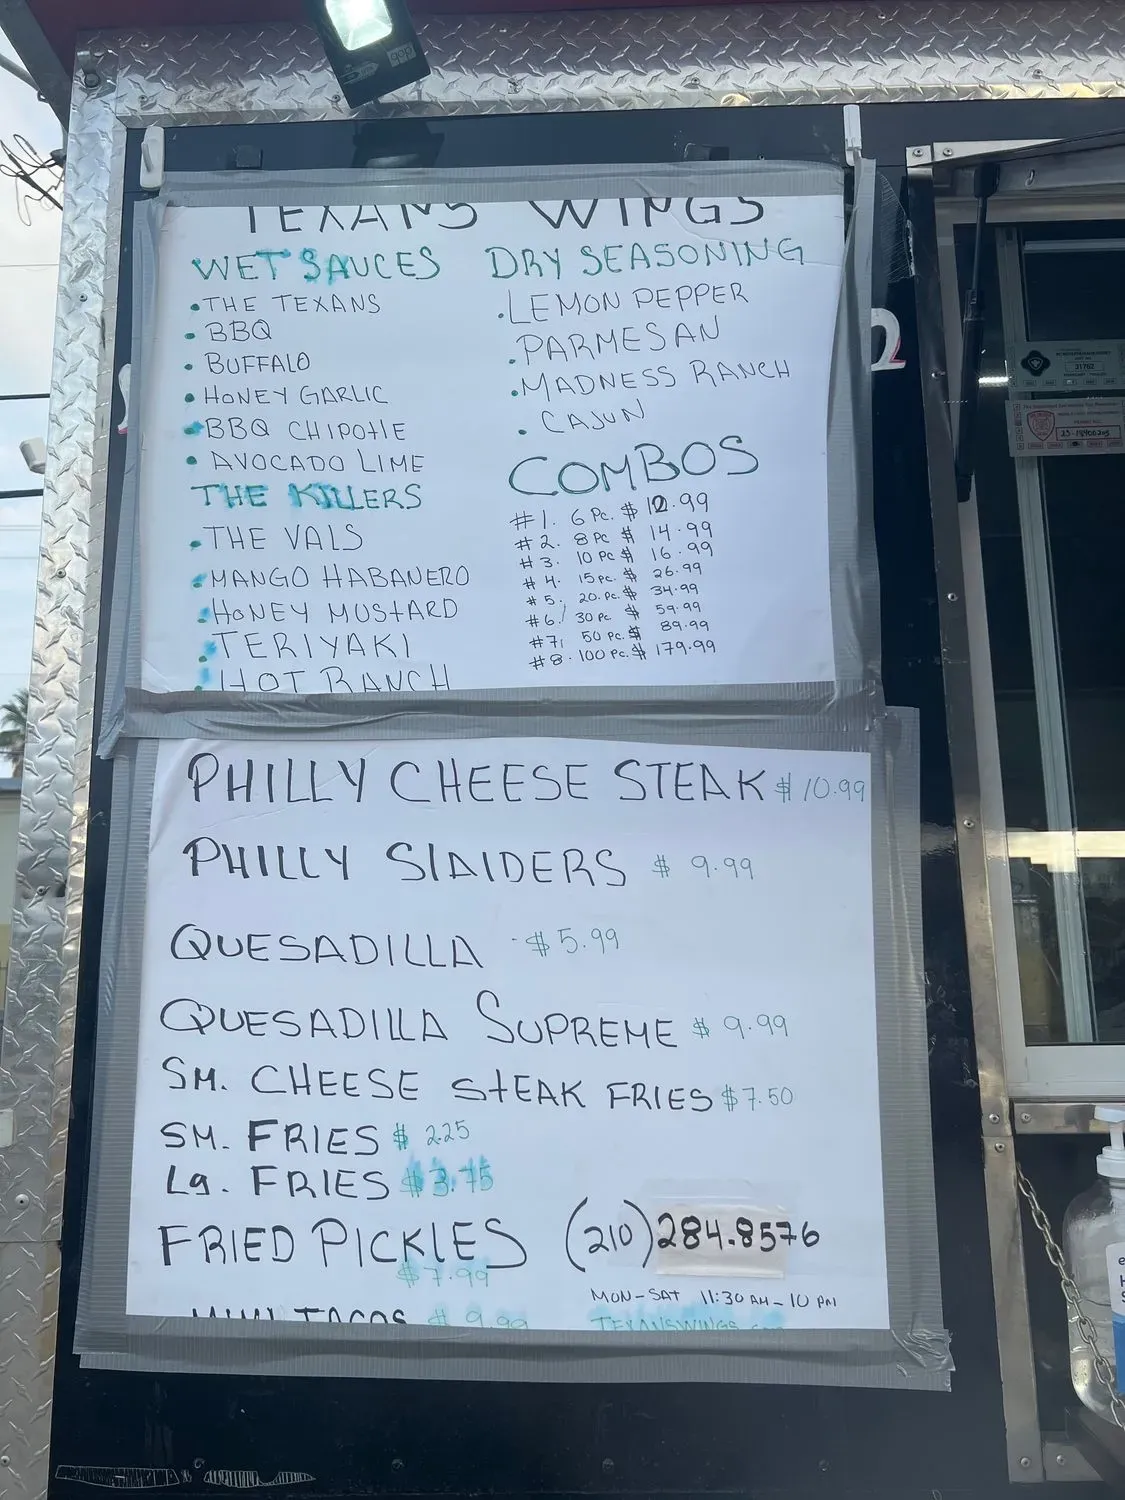 TEXANS WINGS
WET SAUCES
• THE TEXANS
• BBQ
• BUFFALO
• HONEY GARLIC
• BBQ CHIPOtlE
• AVOCADO LIME
THE KILLERS
• THE VALS
• MANGO HABANERO
• HONEY MUStARD
• TERIYAKI
• HOT RANCH
DRY SEASONING
• LEMON PEPPER
• PARMESAN
• MADNESS RANCH
• CAJUN
COMBOS
#1. 6 Pc. $ 12.99
#2. 8 Pc $ 14.99
#3. 10 Pc $ 16.99
#4. 15 pc. $ 26.99
#5. 20 Pc. $ 34.99
#6. 30 Pc $ 59.99
#7. 50 Pc. $ 89.99
#8. 100 Pc. $ 179.99
PHILLY CHEESE STEAK $ 10.99
PHILLY SlAIDERS $ 9.99
QUESADILLA - $ 5.99
QUESADILLA SUPREME $ 9.99
SM. CHEESE StEAK FRIES $7.50
SM. FRIES $ 2.25
Lg. FRIES $3.75
FRIED PICKLES (210)284.8576
$7.99
MON-SAT 11:30 AM - 10 PM
MINI TACOS $ 9.99
TEXANSWINGS.com
31762
23-18400205